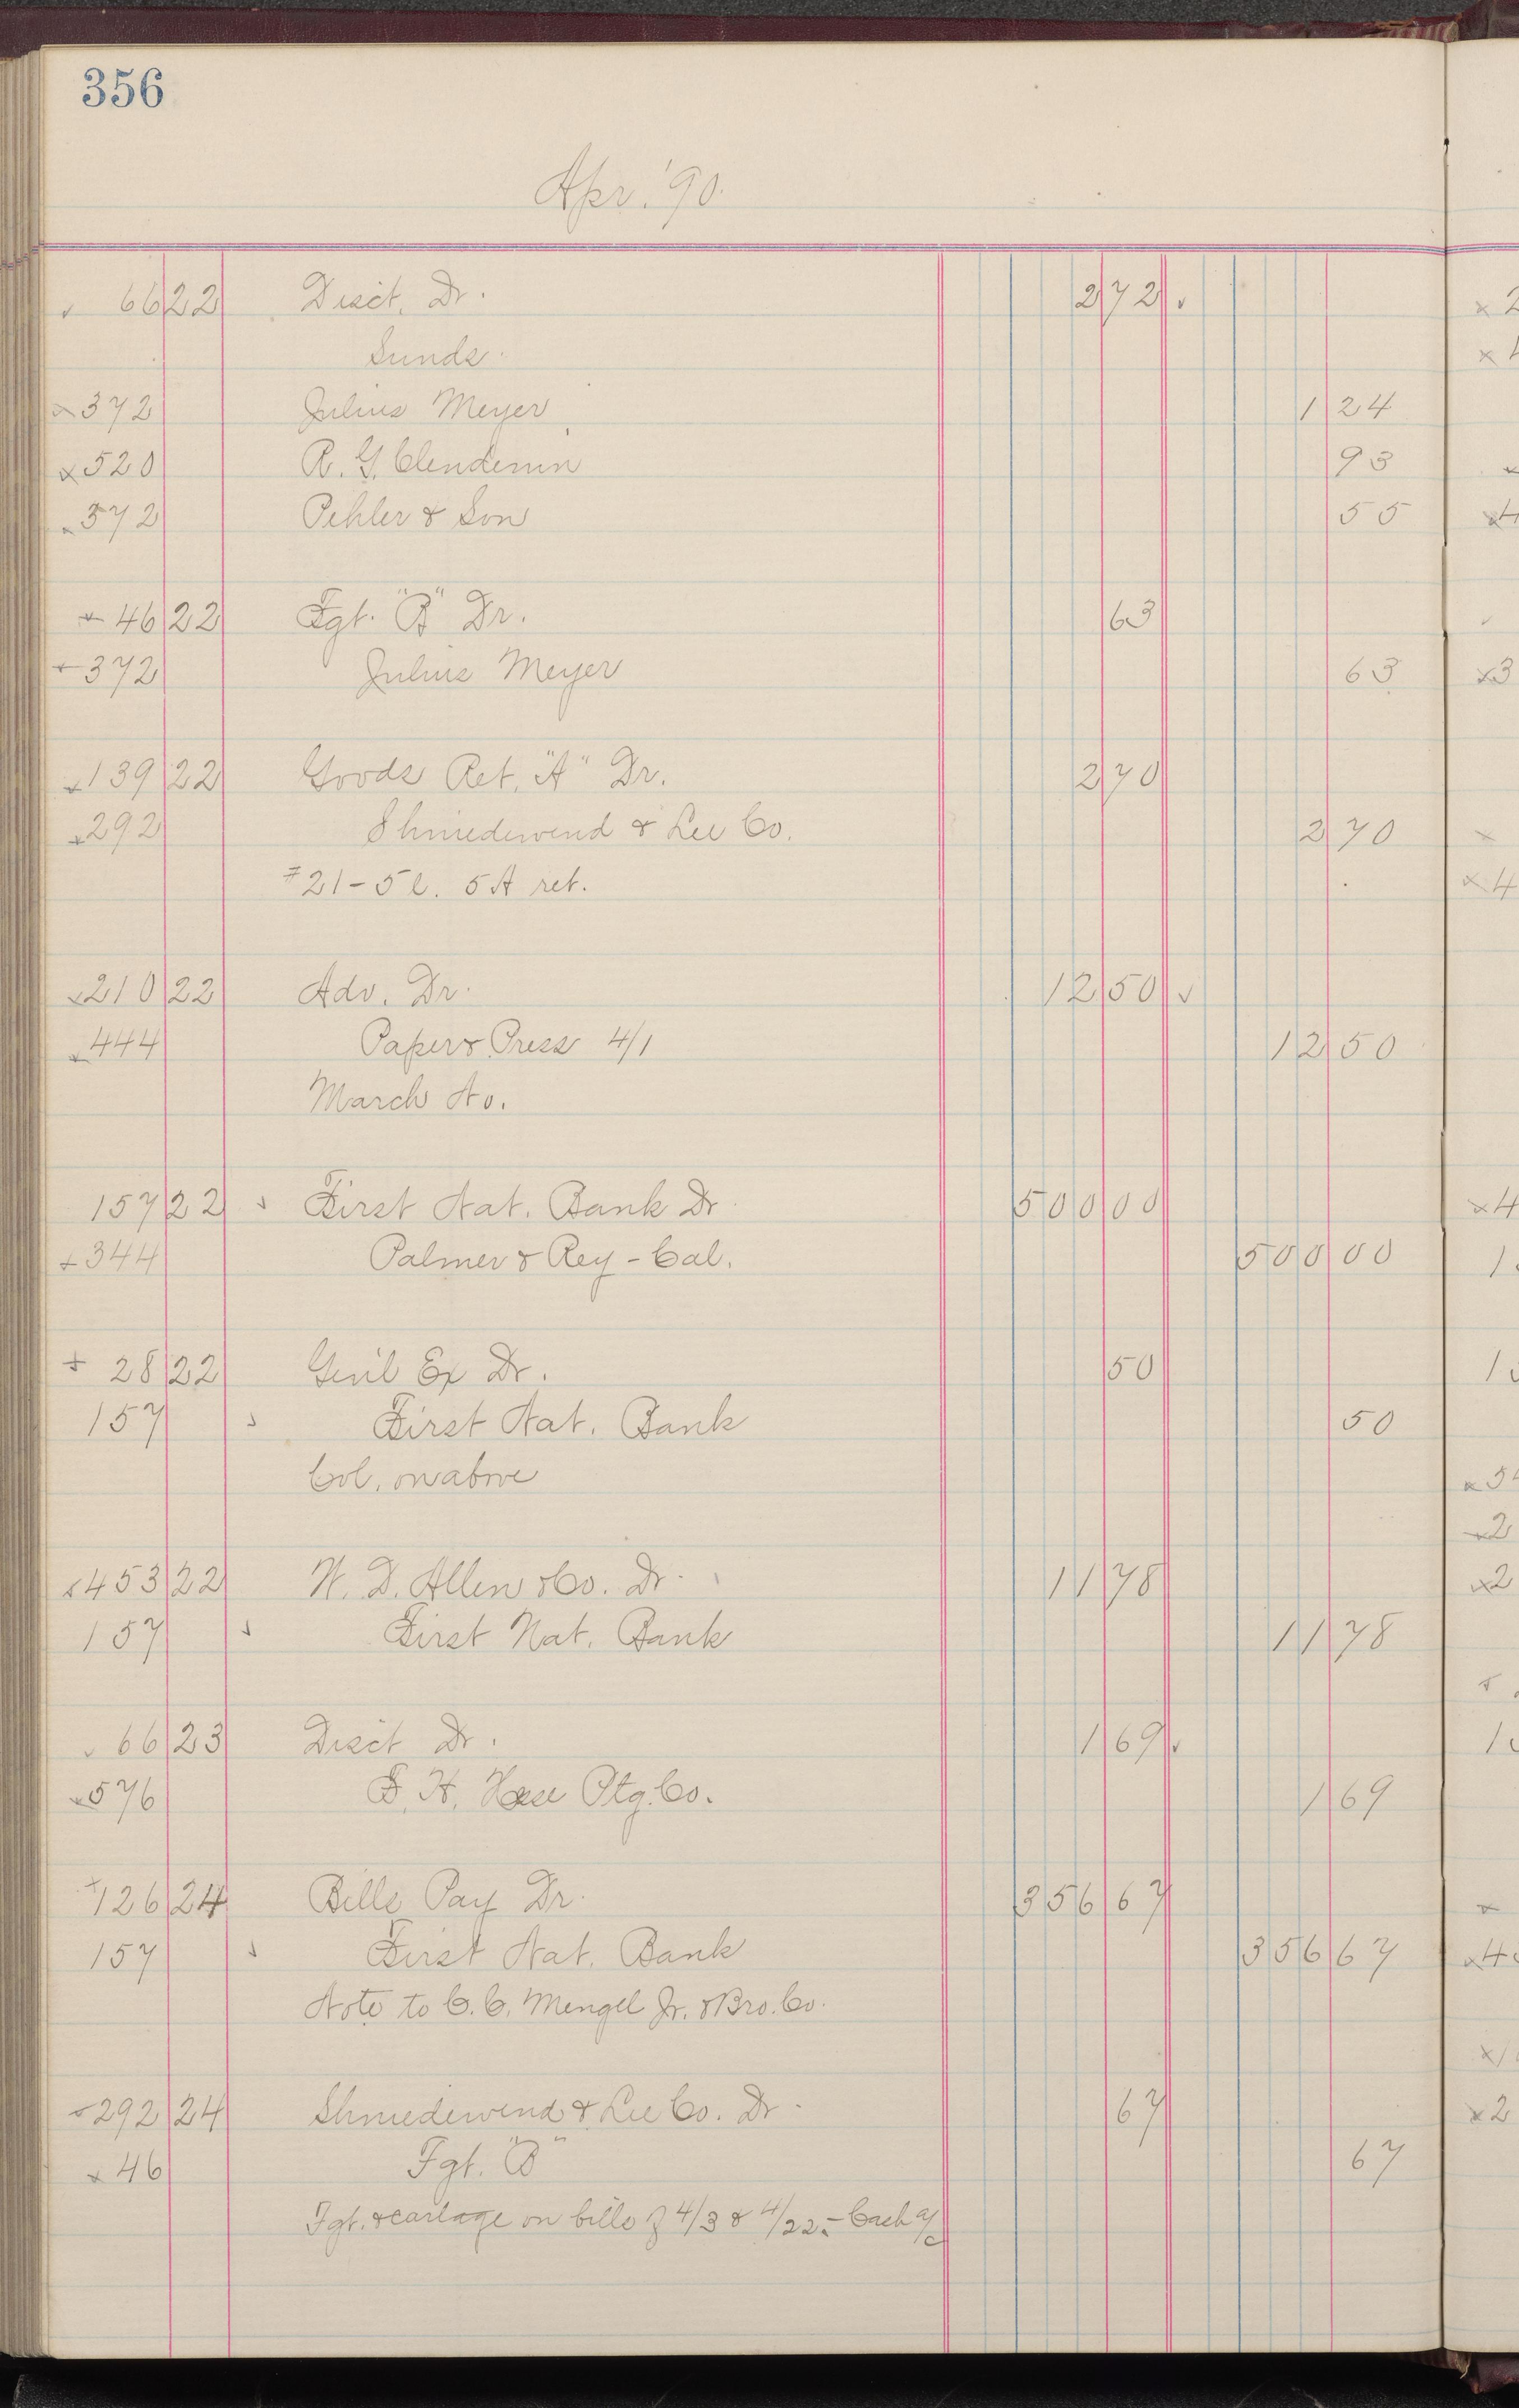 356
Apr. '90.
66 22 Disct. Dr. 2 72
Sunds.
372 Julius Meyer 1 24
520 R. G. Clendenin 93
372 Pehler & Son 55
46 22 Fgt. "B" Dr. 63
372 Julius Meyer 63
139 22 Goods Ret. "A" Dr. 2 70
292 Shniedewend & Lee Co. 2 70
#21-5 l. 5 A ret.
210 22 Adv. Dr. 12 50
444 Paper & Press 4/1 12 50
March No.
157 22 First Nat. Bank Dr 500 00
344 Palmer & Rey - Cal. 500 00
28 22 Gen'l Ex Dr. 50
157 First Nat. Bank 50
Col. on above
453 22 W. D. Allen & Co. Dr. 11 78
157 First Nat. Bank 11 78
66 23 Disct Dr. 1 69
576 Ptg. Co. 1 69
126 24 Bills Pay Dr. 356 67
157 First Nat. Bank 356 67
Note to C. C. Mengel Jr. & Bro. Co.
292 24 Shniedewend & Lee Co. Dr. 67
46 Fgt. "B" 67
Fgt. & cartage on bills of 4/3 & 4/22 - Cash a/c